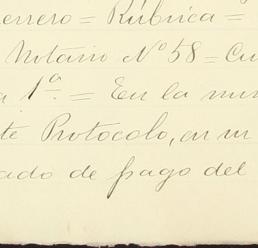 errero = Rúbrica =
Notario Nº 58 = Cu
a 1ª. = En la mis
te Protocolo, en m
ado de pago del